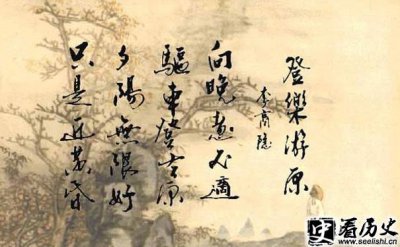 登樂游原
李商隐
向晚意不適
驅車登古原
夕陽無限好
只是近黄昏
看历史
www.seelishi.cn